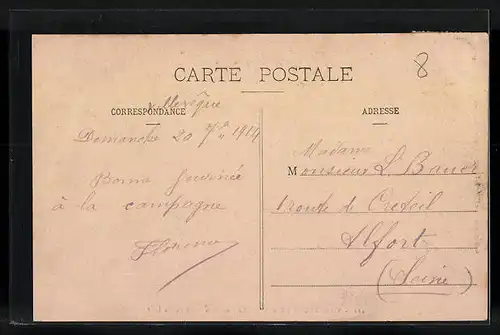 8
CARTE POSTALE
CORRESPONDANCE
Demanche 20 7bre 1914
Bonne Journée
à la campagne
ADRESSE
Madame
Monsieur
route de Creteil
Alfort
(Seine)